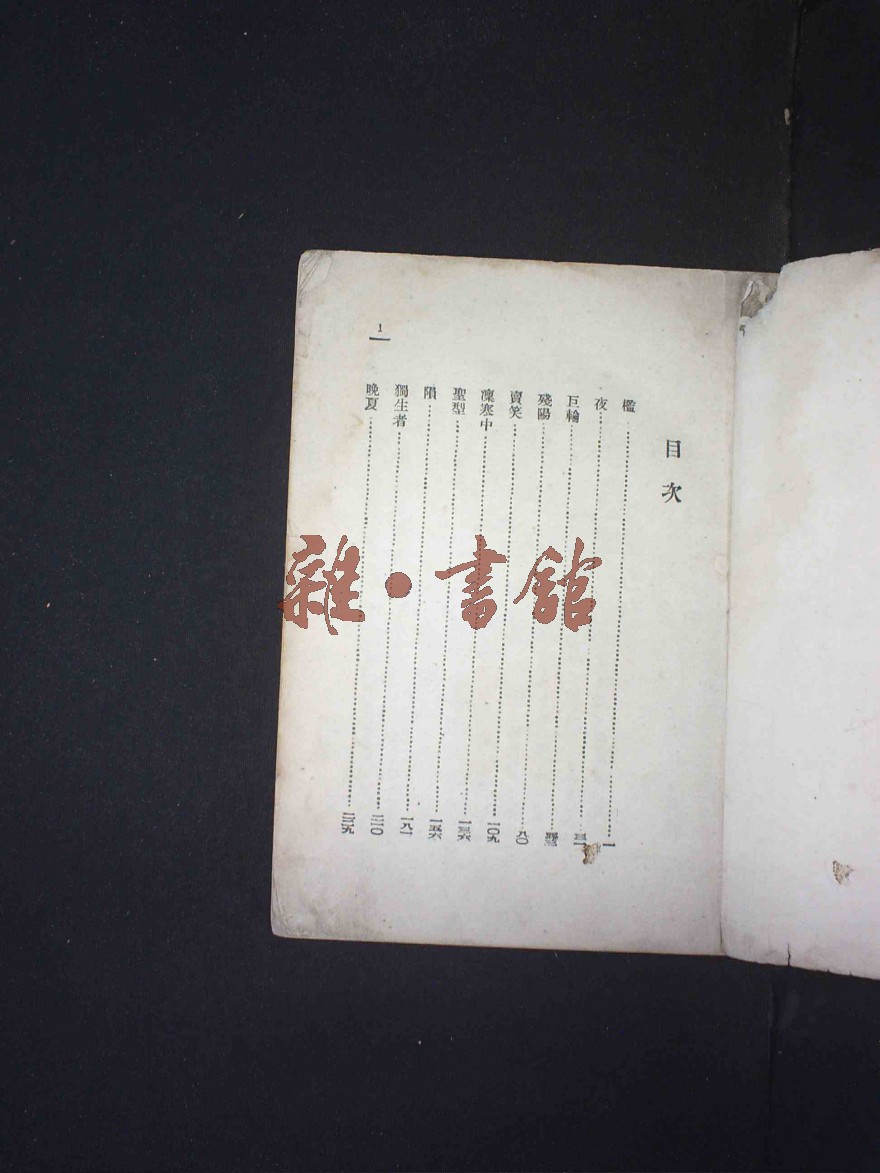 目次
檻……一
夜……
巨輪……
殘陽……八〇
賣笑……一〇九
凜寒中……一三六
聖型……一五六
隕……一八一
獨生者……
晚夏……二三九
1
雜·書館